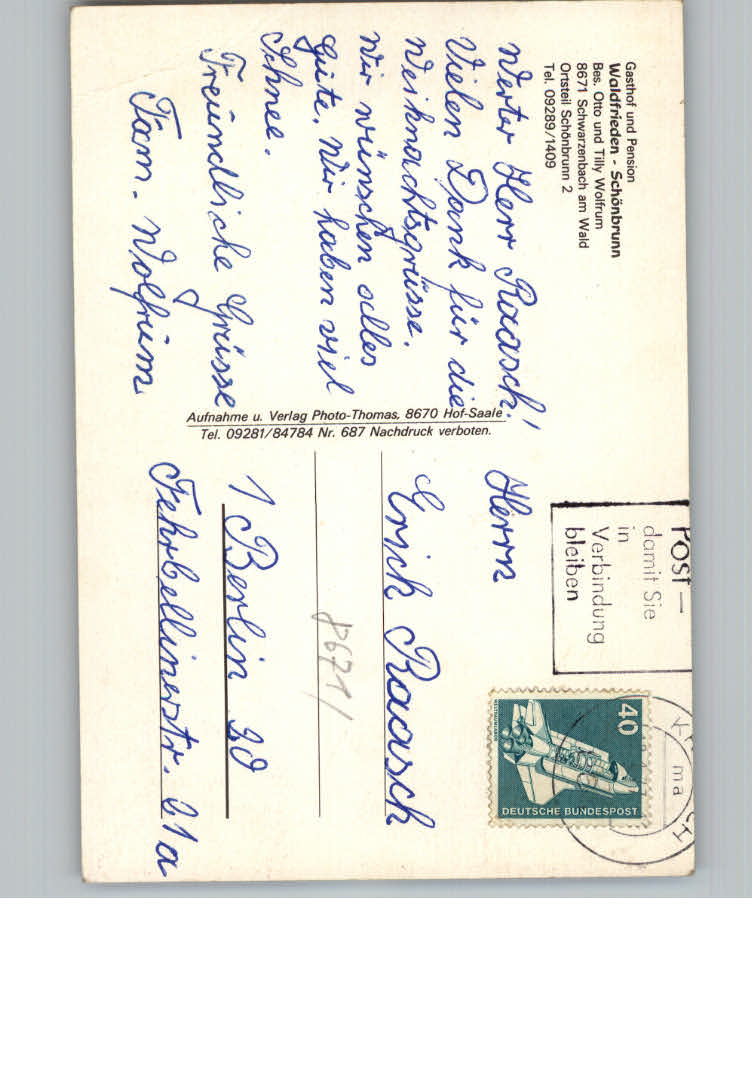 Gasthof und Pension
Waldfrieden - Schönbrunn
Bes. Otto und Tilly Wolfrum
8671 Schwarzenbach am Wald
Ortsteil Schönbrunn 2
Tel. 09289/1409
Werter Herr Raasch!
Vielen Dank für die
Weihnachtsgrüsse.
Wir wünschen alles
Gute. Wir haben viel
Schnee.
Freundliche Grüsse
Fam. Wolfrum
Aufnahme u. Verlag Photo-Thomas, 8670 Hof-Saale
Tel. 09281/84784 Nr. 687 Nachdruck verboten.
Post —
damit Sie
in
Verbindung
bleiben
40
WELTRAUMLABOR
DEUTSCHE BUNDESPOST
ma
Herrn
Erich Raasch
8671
1 Berlin 20
Fehrbellinerstr. 21a